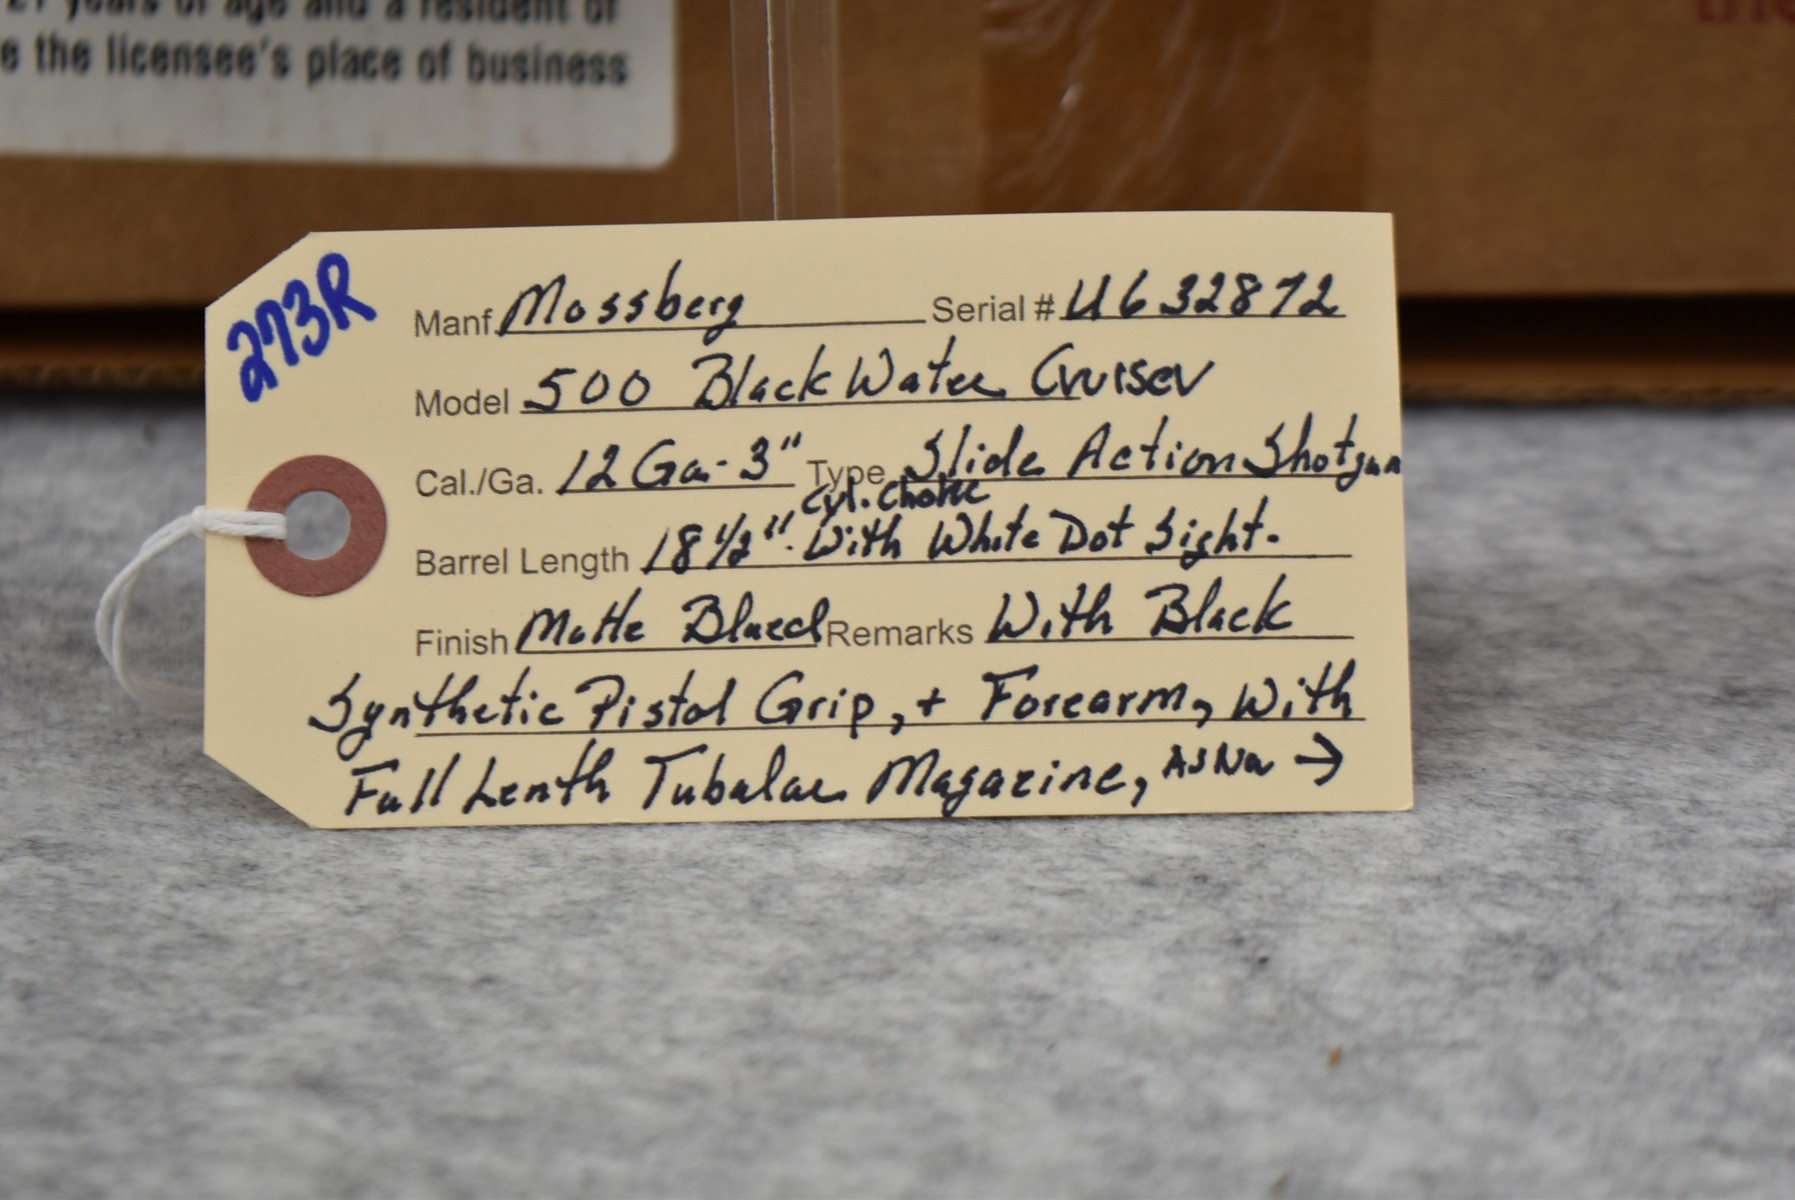 21 years of age and a resident of
e the licensee's place of business
the
273R
Manf Mossberg Serial # U632872
Model 500 Black Water Cruiser
Cal./Ga. 12 Ga. - 3" Type Slide Action Shotgun
Cyl. Choke
Barrel Length 18 1/2". With White Dot Sight.
Finish Matte Blued Remarks With Black
Synthetic Pistol Grip, + Forearm, With
Full Lenth Tubular Magazine, As New →